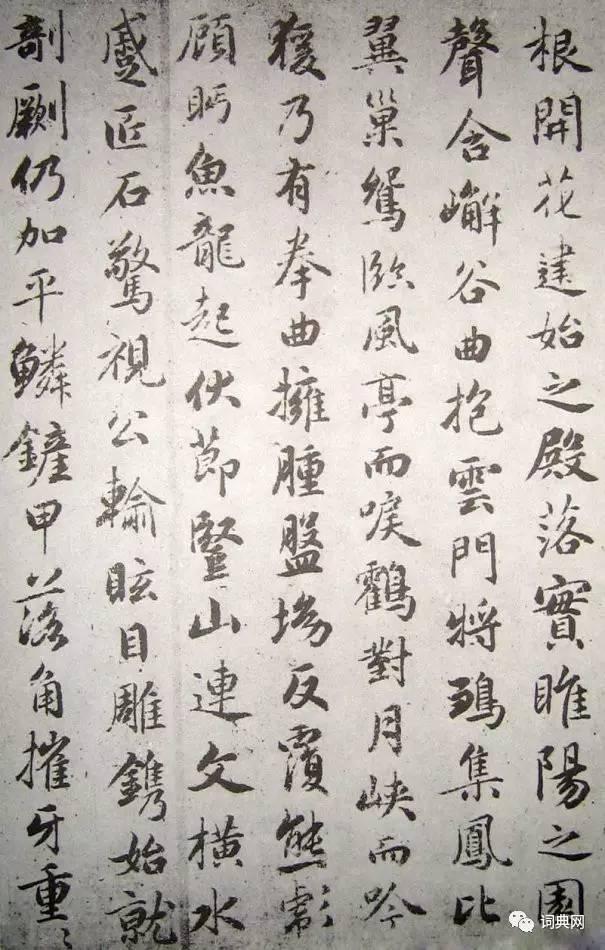 根開花建始之殿落實睢陽之園
聲含嶰谷曲抱雲門將鶵集鳳比
翼巢鴛臨風亭而唳鶴對月峽而吟
猨乃有拳曲擁腫盤坳反覆熊彪
顧眄魚龍起伏節豎山連文橫水
蹙匠石驚視公輸眩目雕鐫始就
剞劂仍加平鱗鏟甲落角摧牙重〻
词典网